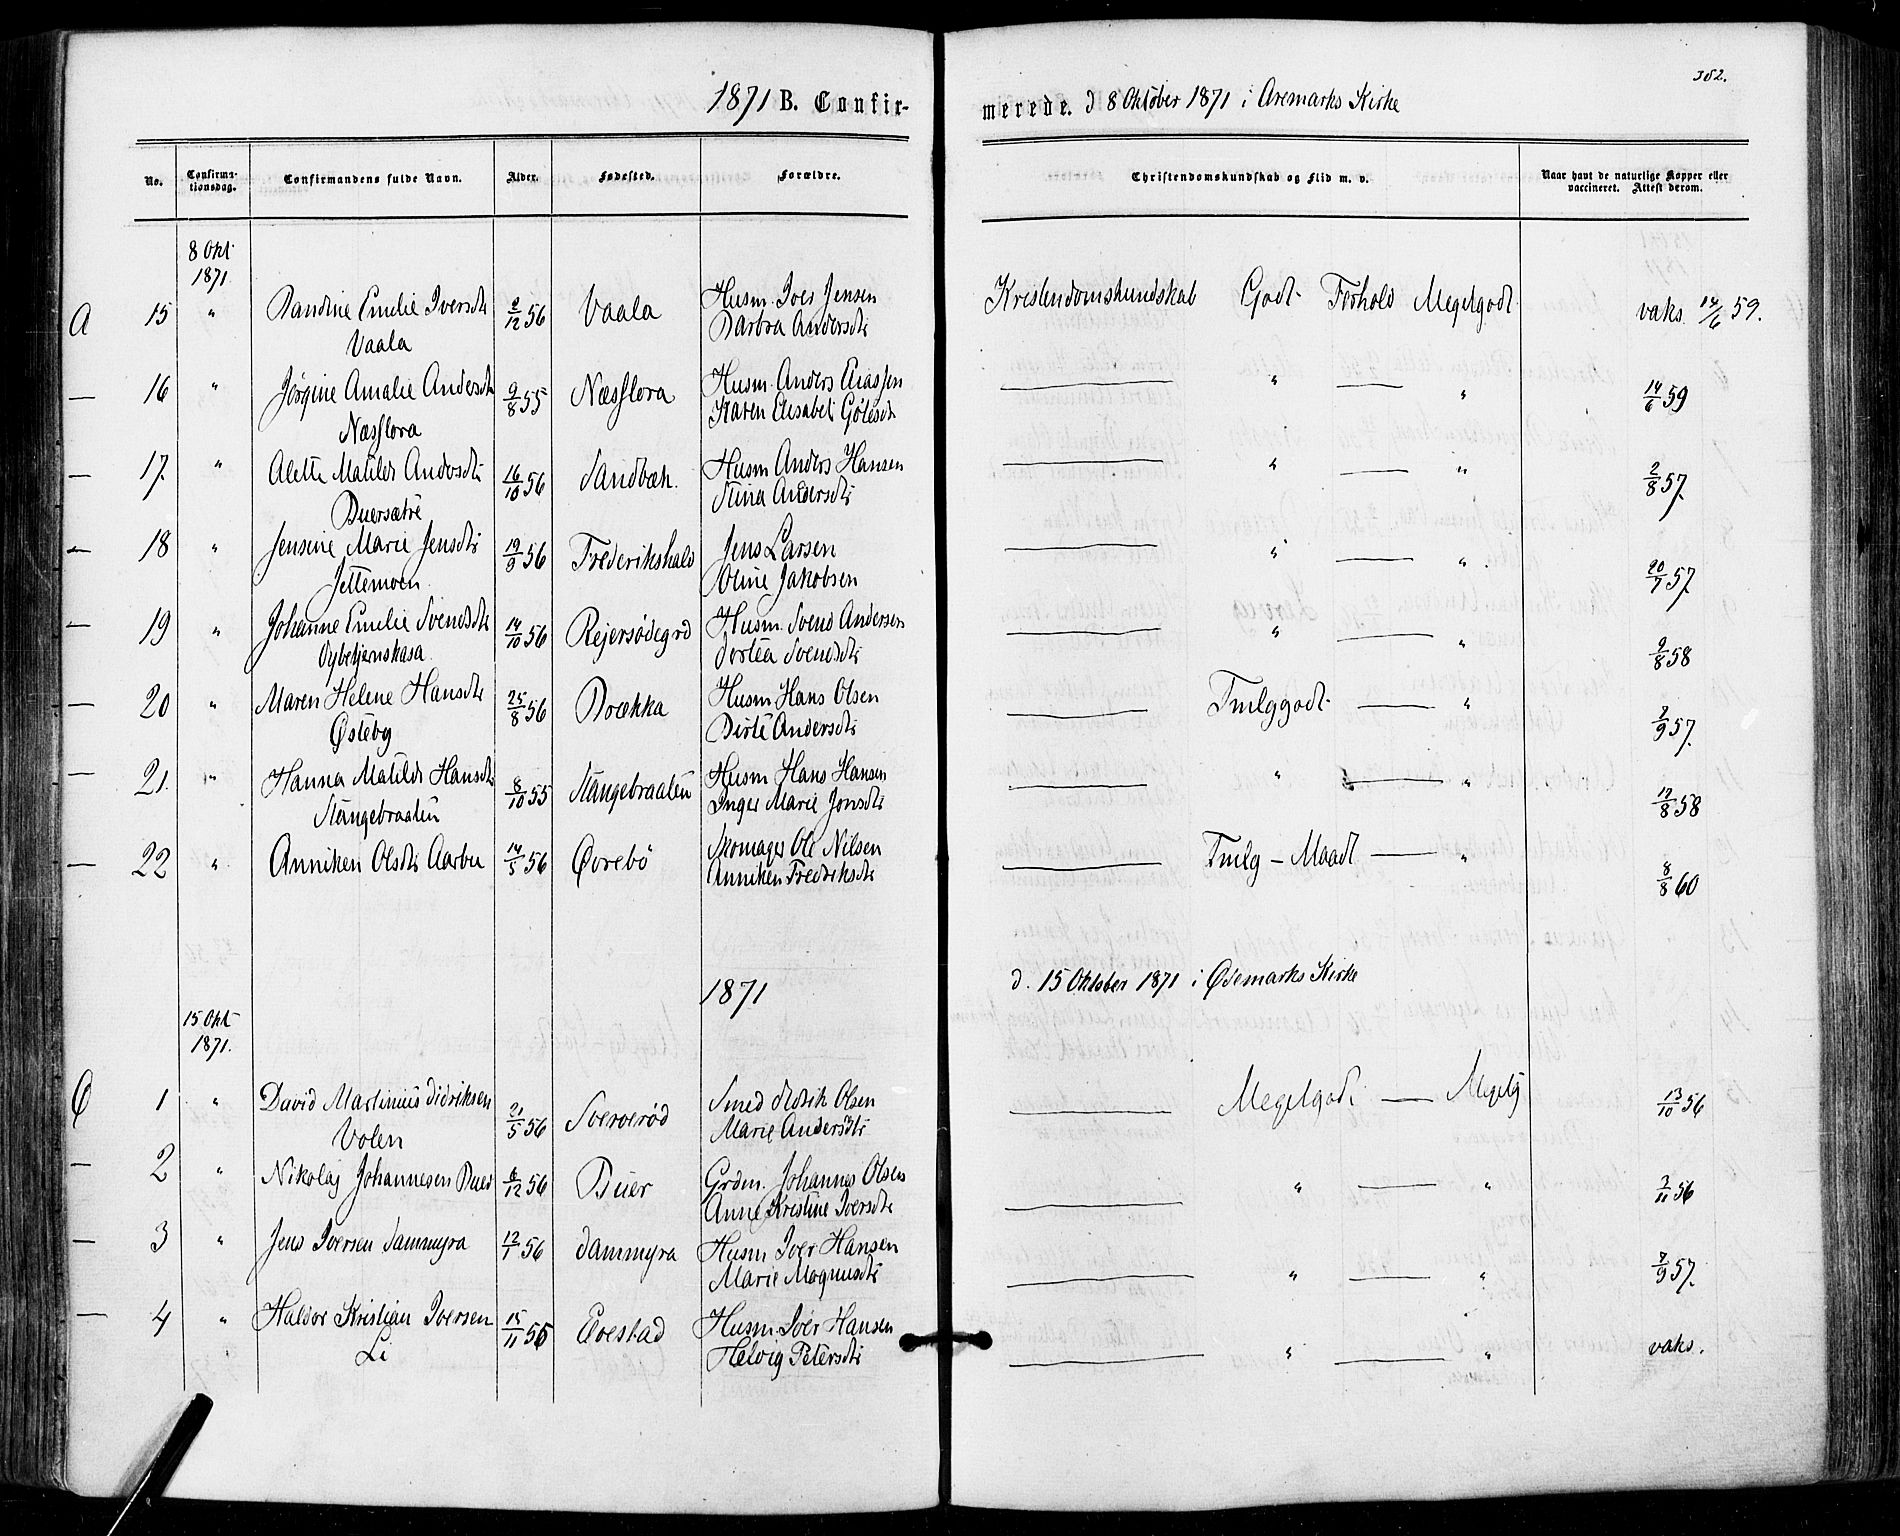 382.
1871 B. Confirmerede. d 8 Oktober 1871 i Aremarks Kirke
No. Confirmationsdag. Confirmandens fulde Navn. Alder. Fødested. Forældre. Christendomskundskab og Flid m. v. Naar havt de naturlige Kopper eller vaccineret. Attest derom.
8 Okt
1871.
A 15 " Randine Emilie Iversdtr 2/12 56 Vaala Husm. Iver Jensen Kristendomskundskab Godt Forhold Megetgodt vaks. 14/6 59.
Vaala Barbra Andersdtr
— 16 " Jørgine Amalie Andersdtr 9/8 55 Næsflora Husm. Anders — " — " 14/6 59
Næsflora Karen Elisabet
— 17. " Alette Matilde Andersdtr 16/10 56 Sandbæk. Husm Anders Hansen — " — " 2/8 57.
Buersætre Stina Andersdtr
— 18 " Jensine Marie Jensdtr 19/9 56 Frederikshald Jens Larsen — " — " . 20/7 57.
Jettemoen. Oline Jakobsen
— 19 " Johanne Emilie Svendsdtr 14/10 56 Rejersødegrd Husm. Svend Andersen — " — " 9/8 58
Dortea Svendsdtr
— 20 " Maren Helene Hansdtr 25/8 56 Brækka Husm Hans Olsen — Tmlggodt — " 7/9 57.
Østeby Birte Andersdtr
— 21. " Hanna Matilde Hansdtr 8/10 55 Stangebraaten Husm Hans Hansen — " — " 12/8 58
Stangebraaten Inger Marie Jonsdtr
— 22 " Anniken Olsdtr Aarbu 14/5 56 Øvrebø Skomager Ole Nilsen — Tmlg – Maadl — " 8/8 60
Anniken Fredriksdtr
1871 d. 15 Oktober 1871 i Ødemarks Kirke
15 Okt
1871.
Ø 1 " David Martinius Didriksen 21/5 56 Sververød Smed Didrik Olsen — Megetgodt — Megetg 13/10 56
Volen Marie Andersdtr
— 2 " Nikolaj Johannesen Buer 6/12 56 Buer Grdm. Johannes Olsen — " — " 3/11 56
Anne Kristine Iversdtr
— 3 " Jens Iversen Dammyra 12/1 56 Dammyra Husm Iver Hansen — " — " 7/9 57.
Marie Magnusdtr
— 4 " Haldor Kristian Iversen 15/11 56 Evestad Husm. Iver Hansen — " — " vaks.
Li Helvig Petersdtr